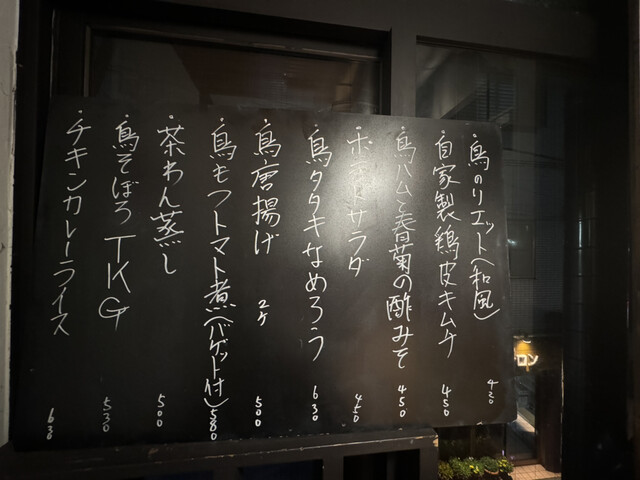 ・鳥のリエット(和風) 420
・自家製鶏皮キムチ 450
・鳥ハムと春菊の酢みそ 450
・ポテトサラダ 450
・鳥タタキなめろう 630
・鳥唐揚げ 2ケ 500
・鳥もつトマト煮(バゲット付) 580
・茶わん蒸し 500
・鳥そぼろTKG 530
・チキンカレーライス 630
ロン